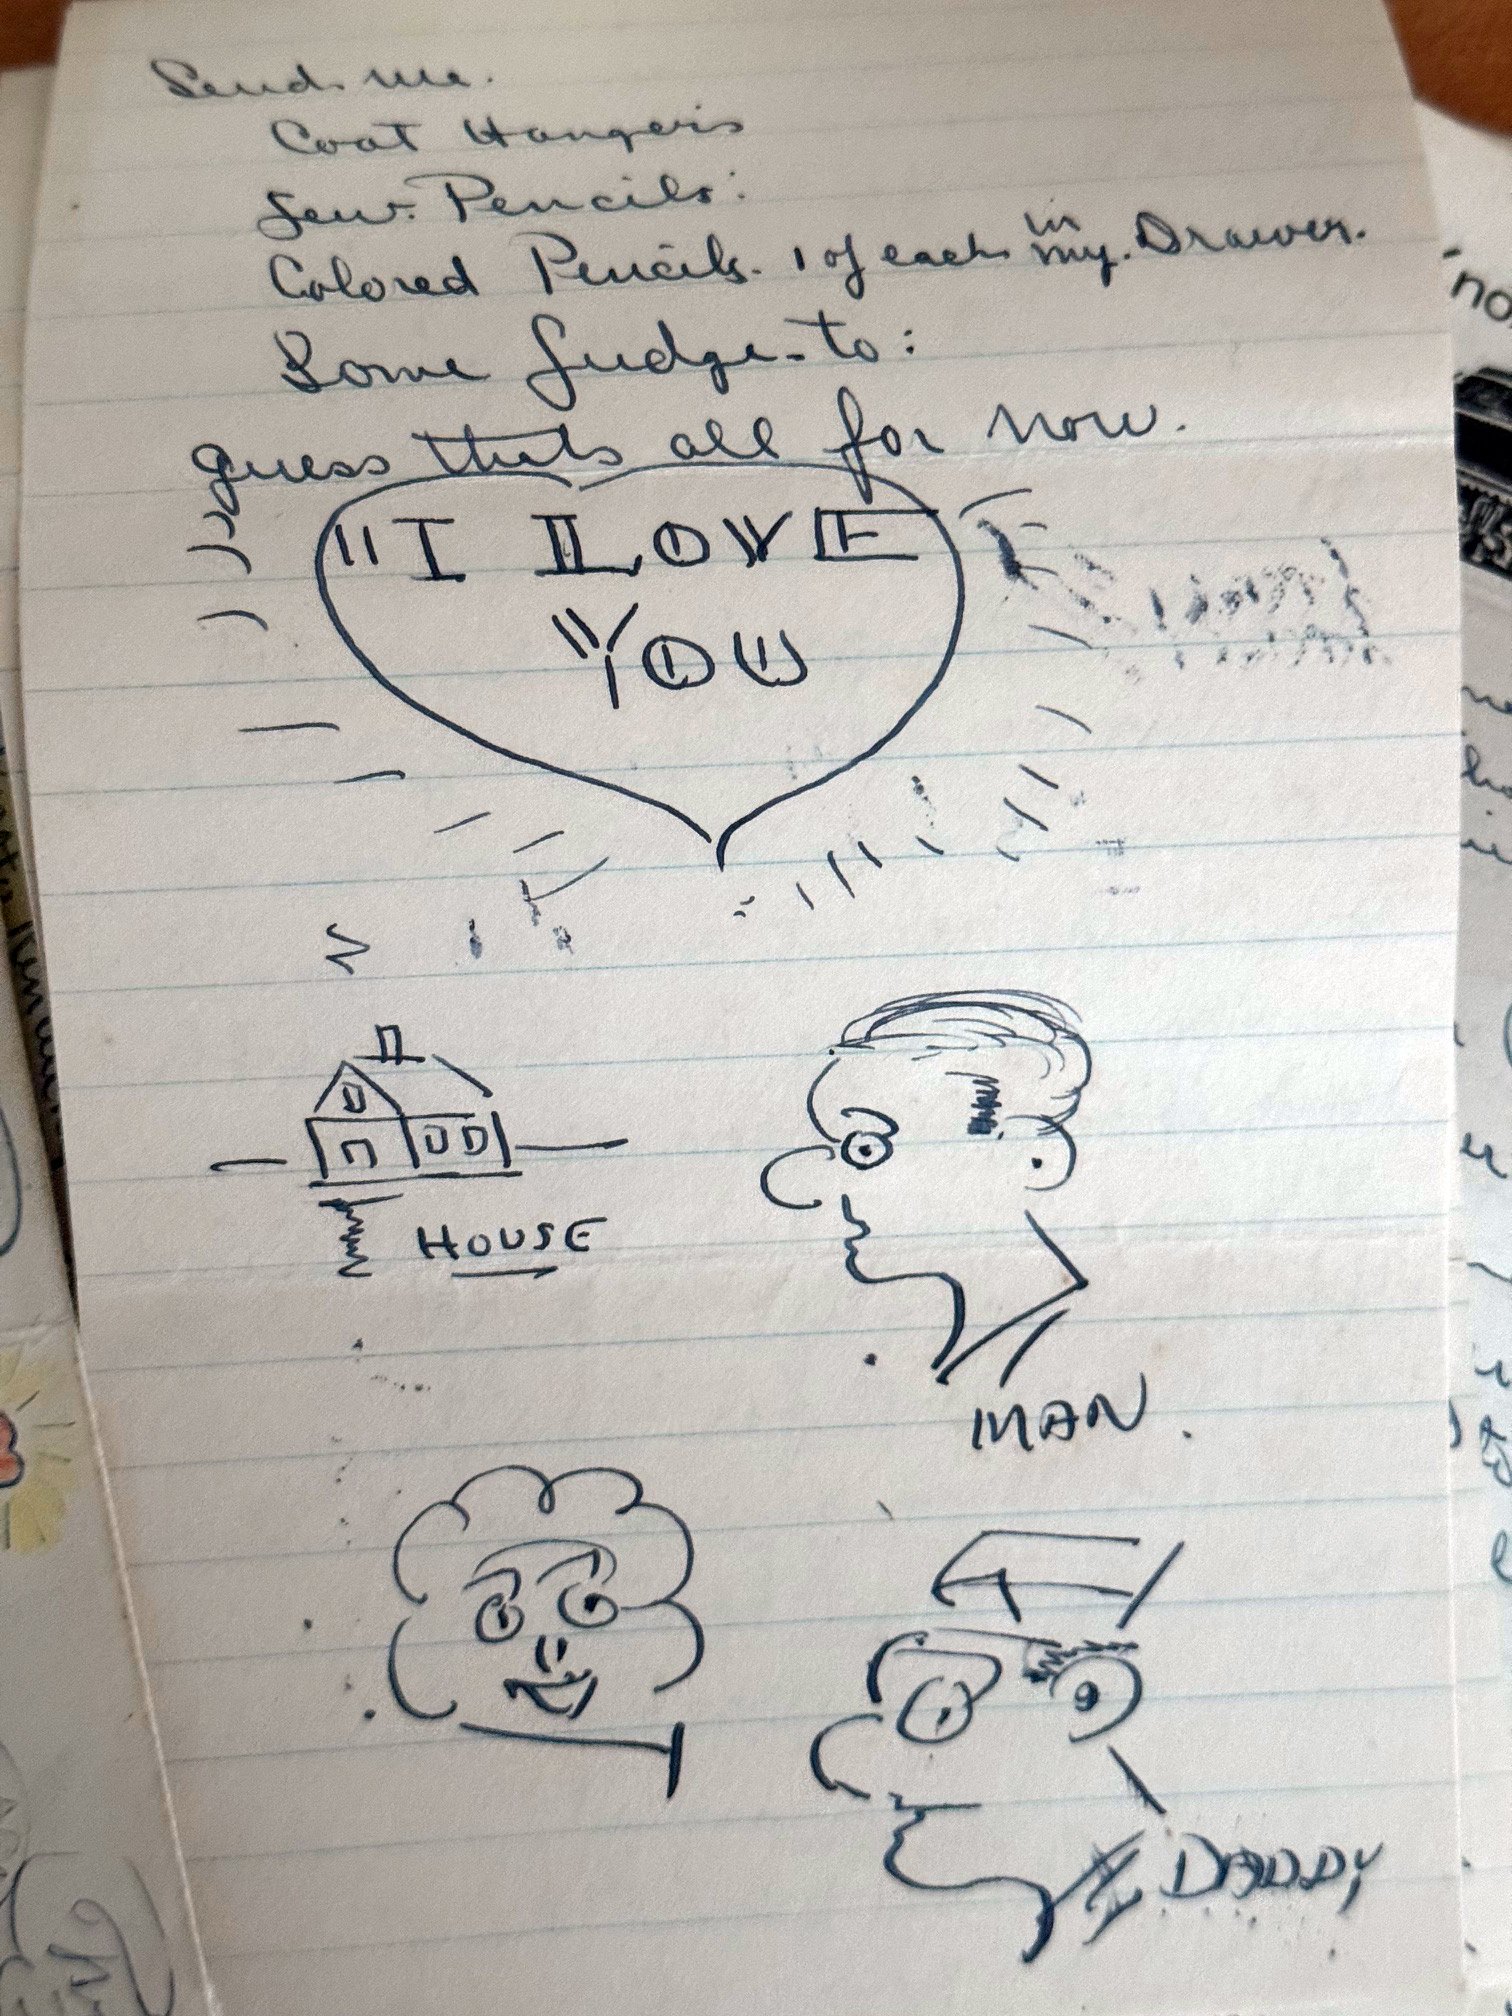 Send me.
Coat Hangers
few Pencils:
Colored Pencils. 1 of each in my. Drawer.
Some fudge-to:
guess thats all for now.
"I LOVE
YOU
HOUSE
MAN.
DADDY